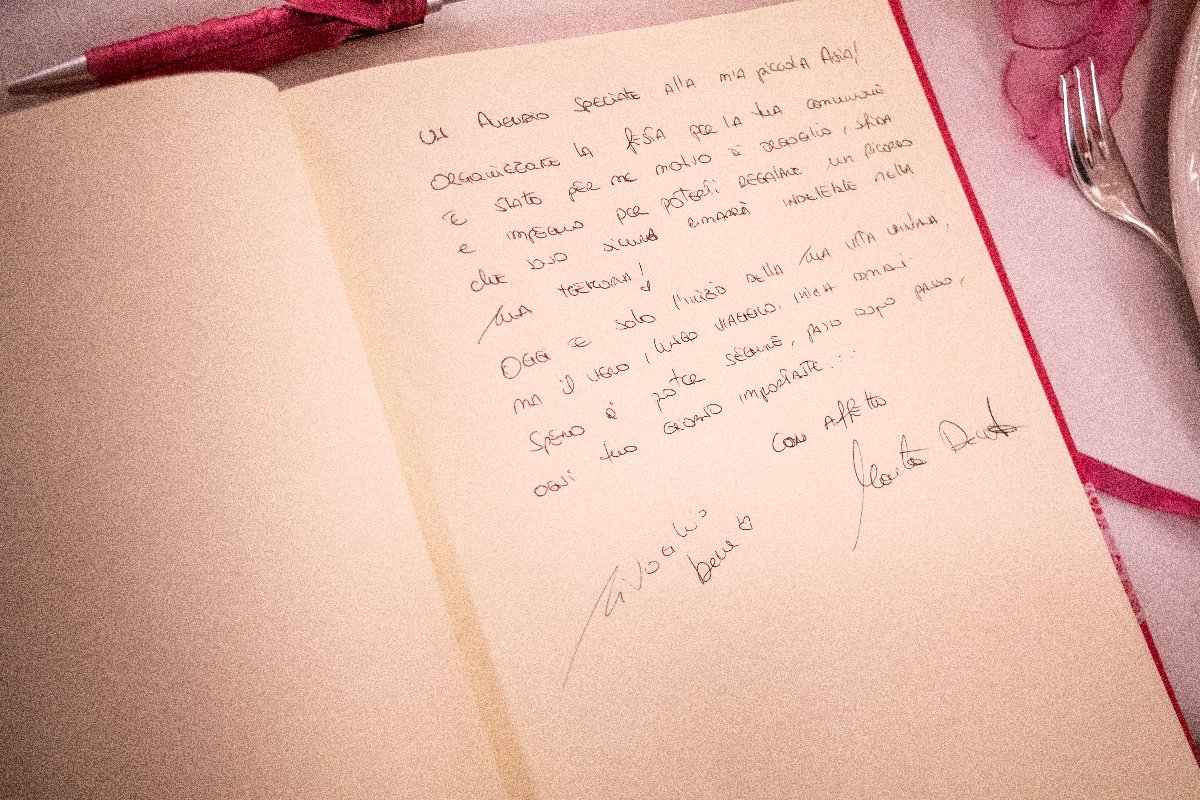 Un Augurio speciale alla mia piccola Asia!
Organizzare la festa per la tua comunione
è stato per me motivo di orgoglio, sfida
e impegno per poterti regalare un ricordo
che sono sicura rimarrà indelebile nella
tua memoria!
Oggi è solo l'inizio della tua vita cristiana,
ma il vero, lungo viaggio, inizia domani.
Spero di poter seguire, passo dopo passo,
ogni tuo giorno importante...
Con Affetto
Ti voglio
bene